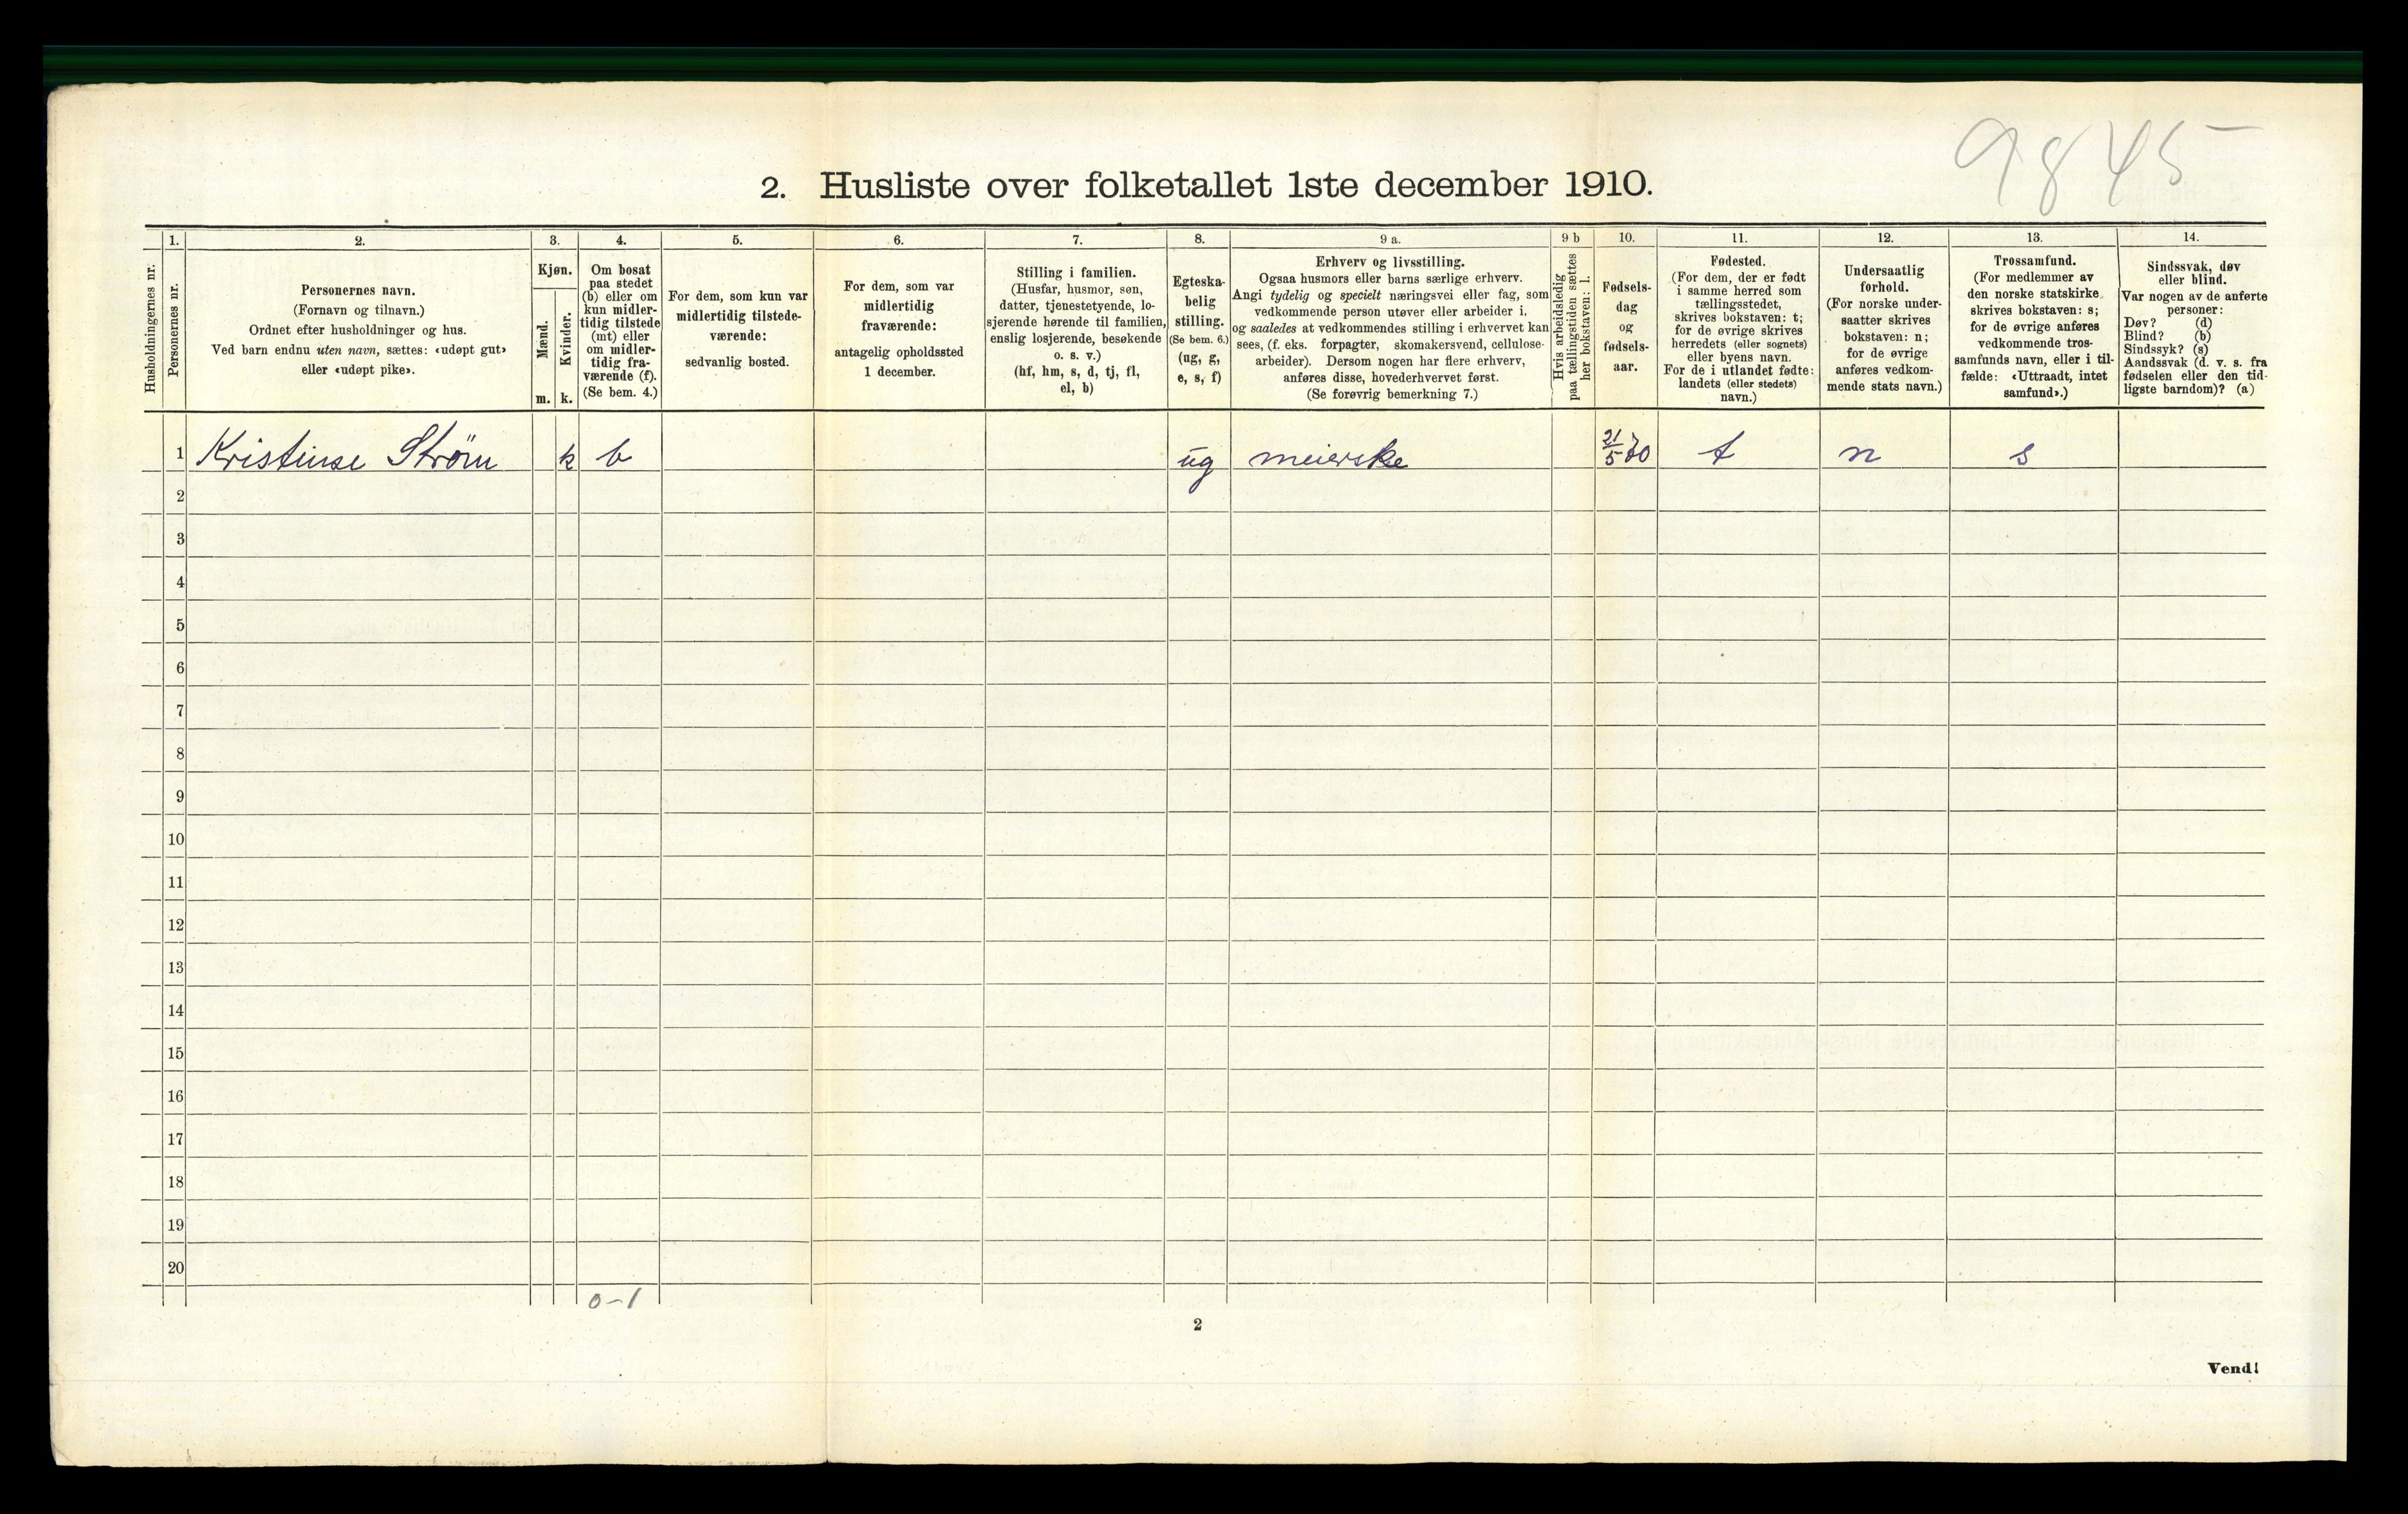 9845
2. Husliste over folketallet 1ste december 1910.
Husholdningernes nr.
1.
Personernes nr.
2.
Personernes navn.
(Fornavn og tilnavn.)
Ordnet efter husholdninger og hus.
Ved barn endnu uten navn, sættes: «udøpt gut»
eller «udøpt pike».
3.
Kjøn.
Mænd.
Kvinder.
m.
k.
4.
Om bosat
paa stedet
(b) eller om
kun midler-
tidig tilstede
(mt) eller
om midler-
tidig fra-
værende (f).
(Se bem. 4.)
5.
For dem, som kun var
midlertidig tilstede-
værende:
sedvanlig bosted.
6.
For dem, som var
midlertidig
fraværende:
antagelig opholdssted
1 december.
7.
Stilling i familien.
(Husfar, husmor, søn,
datter, tjenestetyende, lo-
sjerende hørende til familien,
enslig losjerende, besøkende
o. s. v.)
(hf, hm, s, d, tj, fl,
el, b)
8.
Egteska-
belig
stilling.
(Se bem. 6.)
(ug, g,
e, s, f)
9 a.
Erhverv og livsstilling.
Ogsaa husmors eller barns særlige erhverv.
Angi tydelig og specielt næringsvei eller fag, som
vedkommende person utøver eller arbeider i,
og saaledes at vedkommendes stilling i erhvervet kan
sees, (f. eks. forpagter, skomakersvend, cellulose-
arbeider). Dersom nogen har flere erhverv,
anføres disse, hovederhvervet først.
(Se forøvrig bemerkning 7.)
9 b
Hvis arbeidsledig
paa tællingstiden sættes
her bokstaven: l.
10.
Fødsels-
dag
og
fødsels-
aar.
11.
Fødested.
(For dem, der er født
i samme herred som
tællingsstedet,
skrives bokstaven: t;
for de øvrige skrives
herredets (eller sognets)
eller byens navn.
For de i utlandet fødte:
landets (eller stedets)
navn.)
12.
Undersaatlig
forhold.
(For norske under-
saatter skrives
bokstaven: n;
for de øvrige
anføres vedkom-
mende stats navn.)
13.
Trossamfund.
(For medlemmer av
den norske statskirke
skrives bokstaven: s;
for de øvrige anføres
vedkommende tros-
samfunds navn, eller i til-
fælde: «Uttraadt, intet
samfund».)
14.
Sindssvak, døv
eller blind.
Var nogen av de anførte
personer:
Døv? (d)
Blind? (b)
Sindssyk? (s)
Aandssvak (d. v. s. fra
fødselen eller den tid-
ligste barndom)? (a)
1 Kristinse Strøm k b ug meierske 21/5 70 t n s
2
3
4
5
6
7
8
9
10
11
12
13
14
15
16
17
18
19
20
0-1
2
Vend!